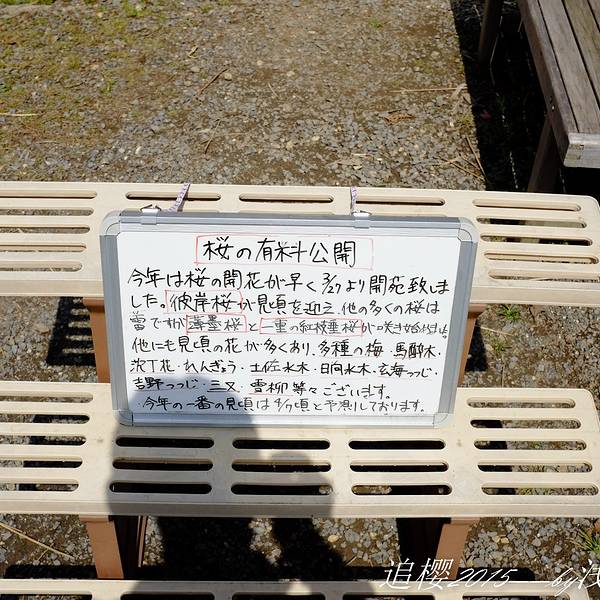 桜の有料公開
今年は桜の開花が早く3/27より開苑致しま
した。彼岸桜が見頃を迎え、他の多くの桜は
蕾ですが薄墨桜と一重の紅枝垂桜が咲き始めました。
他にも見頃の花が多くあり、多種の梅・馬酔木・
沈丁花・れんぎょう・土佐水木・日向水木・玄海つつじ・
吉野つつじ・三又・雪柳等々ございます。
今年の一番の見頃は4/7頃と予測しております。
追樱2015——by浅